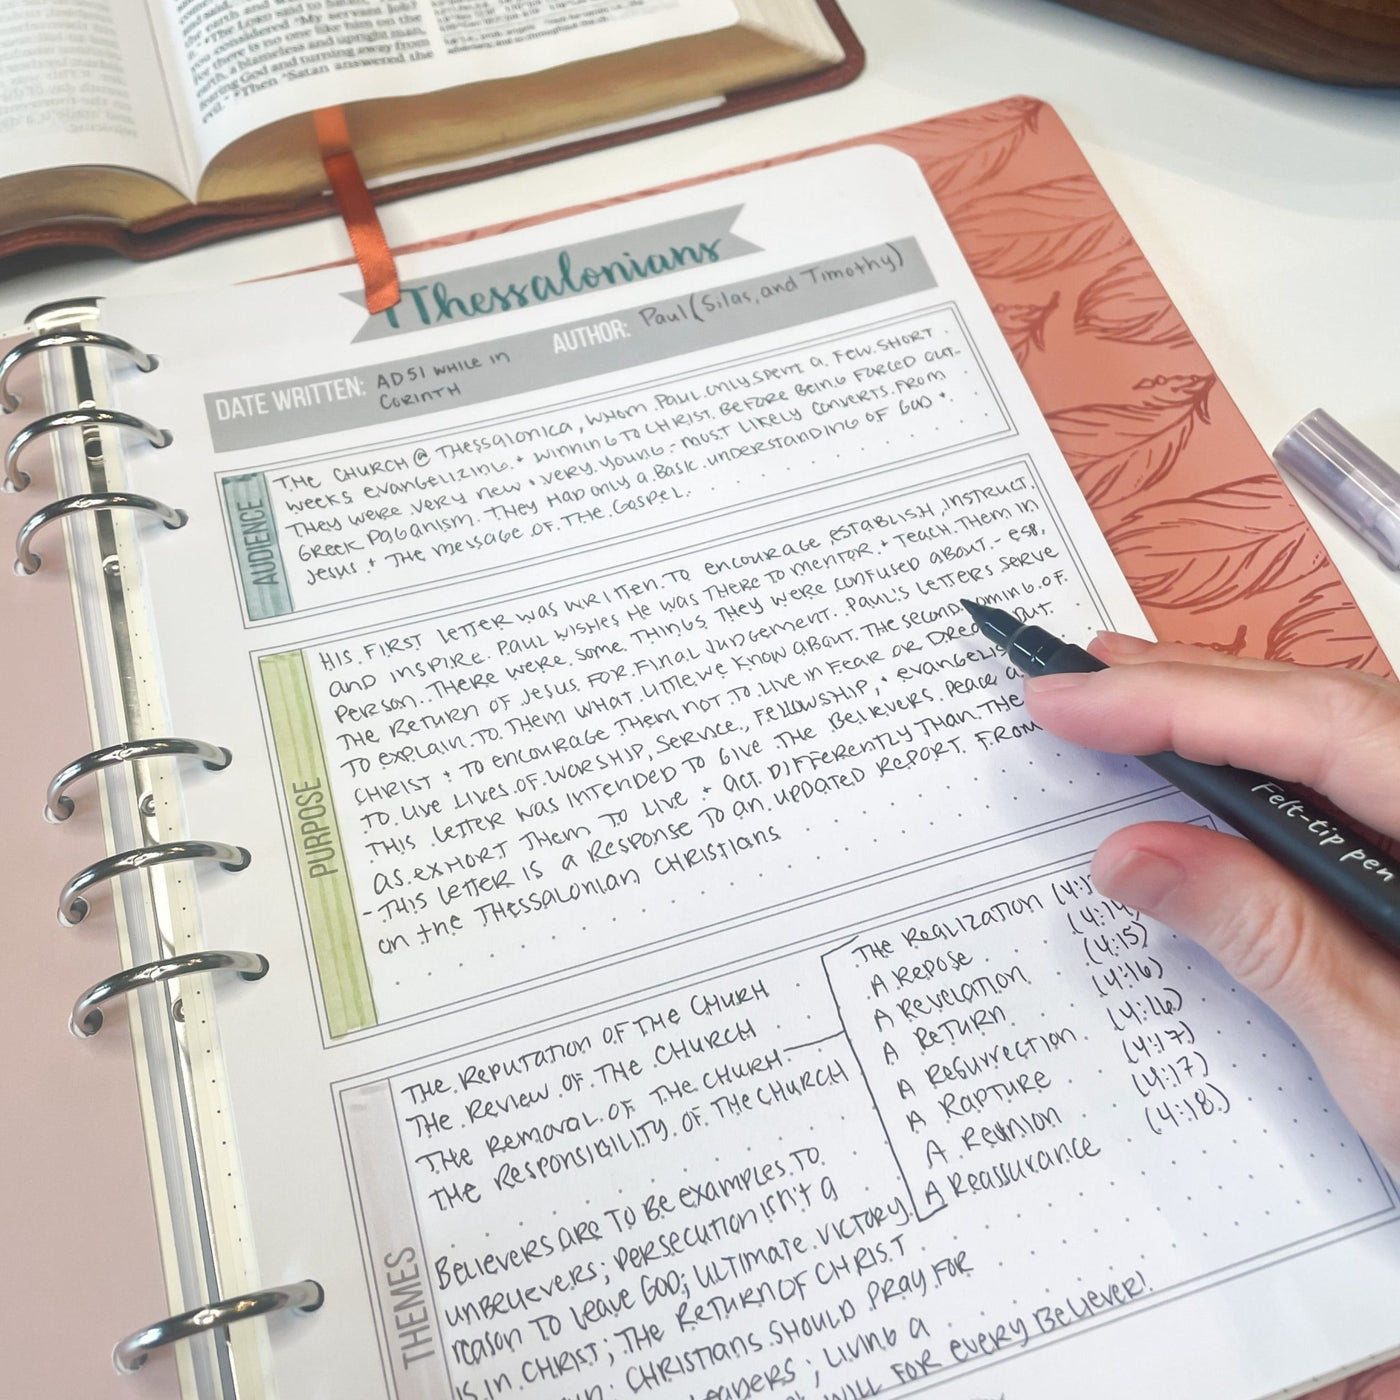 and said,
and earth and
the LORD said to Satan,
considered "My servant Job?
for there is no one like him on the
earth, a blameless and upright man,
fearing God and turning away from
evil." 9Then "Satan answered the
1 Thessalonians
DATE WRITTEN: AD 51 WHILE IN CORINTH
AUTHOR: Paul (Silas, and Timothy)
AUDIENCE
THE CHURCH @ THESSALONICA, WHOM PAUL ONLY SPENT A FEW SHORT
WEEKS EVANGELIZING + WINNING TO CHRIST BEFORE BEING FORCED OUT.
THEY WERE VERY NEW + VERY YOUNG - MOST LIKELY CONVERTS FROM
GREEK PAGANISM. THEY HAD ONLY A BASIC UNDERSTANDING OF GOD +
JESUS + THE MESSAGE OF THE GOSPEL.
PURPOSE
HIS FIRST LETTER WAS WRITTEN TO ENCOURAGE ESTABLISH, INSTRUCT,
AND INSPIRE. PAUL WISHES HE WAS THERE TO MENTOR + TEACH THEM IN
PERSON. THERE WERE SOME THINGS THEY WERE CONFUSED ABOUT - ESP,
THE RETURN OF JESUS FOR FINAL JUDGEMENT. PAUL'S LETTERS SERVE
TO EXPLAIN TO THEM WHAT LITTLE WE KNOW ABOUT THE SECOND COMING OF
CHRIST + TO ENCOURAGE THEM NOT TO LIVE IN FEAR OR DREAD BUT
TO LIVE LIVES OF WORSHIP, SERVICE, FELLOWSHIP, + EVANGELIS
THIS LETTER WAS INTENDED TO GIVE THE BELIEVERS PEACE A
AS EXHORT THEM TO LIVE + ACT DIFFERENTLY THAN THE
- THIS LETTER IS A RESPONSE TO AN UPDATED REPORT FROM
ON THE THESSALONIAN CHRISTIANS
THEMES
THE REPUTATION OF THE CHURH
THE REVIEW OF THE CHURCH
THE REMOVAL OF THE CHURH
THE RESPONSIBILITY OF THE CHURCH
THE REALIZATION (4:13
A REPOSE (4:14
A REVELATION (4:15)
A RETURN (4:16)
A RESURRECTION (4:16)
A RAPTURE (4:17)
A REUNION (4:17)
A REASSURANCE (4:18)
BELIEVERS ARE TO BE EXAMPLES TO
UNBELIEVERS; PERSECUTION ISN'T A
REASON TO LEAVE GOD; ULTIMATE VICTORY
IS IN CHRIST; THE RETURN OF CHRIST
CHRISTIANS SHOULD PRAY FOR
LEADERS; LIVING A
WILL FOR EVERY BELIEVER!
Felt-tip pen